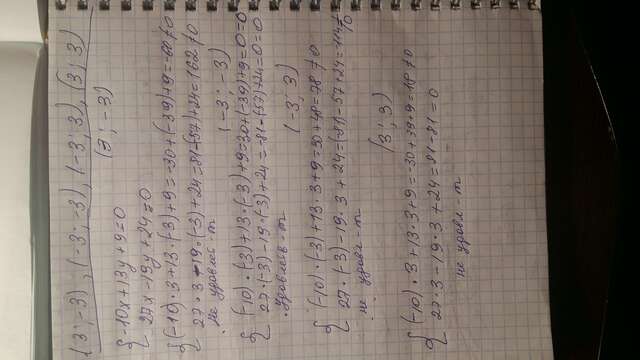 (3; -3), (-3; -3), (-3; 3), (3; 3)
(3; -3)
{ -10x+13y+9=0
27x-19y+24=0
{ (-10)·3+13·(-3)+9=-30+(-39)+9=-60≠0
27·3-19·(-3)+24=81-(57)+24=162≠0
не удовлет-т
(-3; -3)
{ (-10)·(-3)+13·(-3)+9=30+(-39)+9=0=0
27·(-3)-19·(-3)+24=-81-(57)+24=0=0
удовлетв-т
(-3; 3)
{ (-10)·(-3)+13·3+9=30+48=78≠0
27·(-3)-19·3+24=(-81)-57+24=-114≠0
не удовл-т
(3; 3)
{ (-10)·3+13·3+9=-30+39+9=18≠0
27·3-19·3+24=81-81=0
не удовл-т